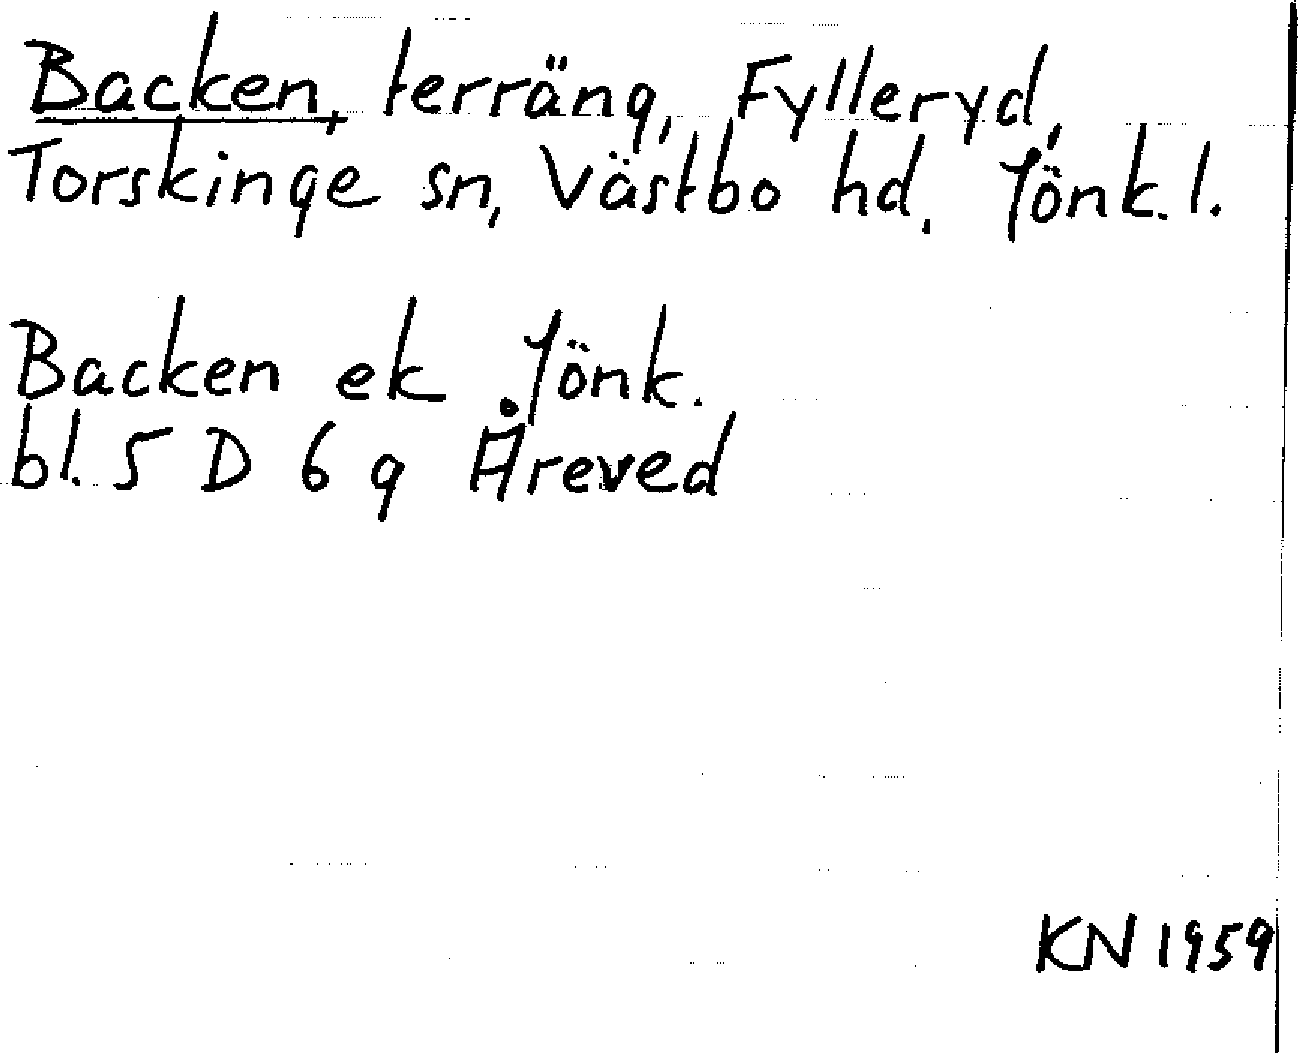 Backen, terräng, Fylleryd,
Torskinge sn, Västbo hd. Jönk. l.
Backen ek Jönk.
bl. 5 D 6 g Åreved
KN 1959